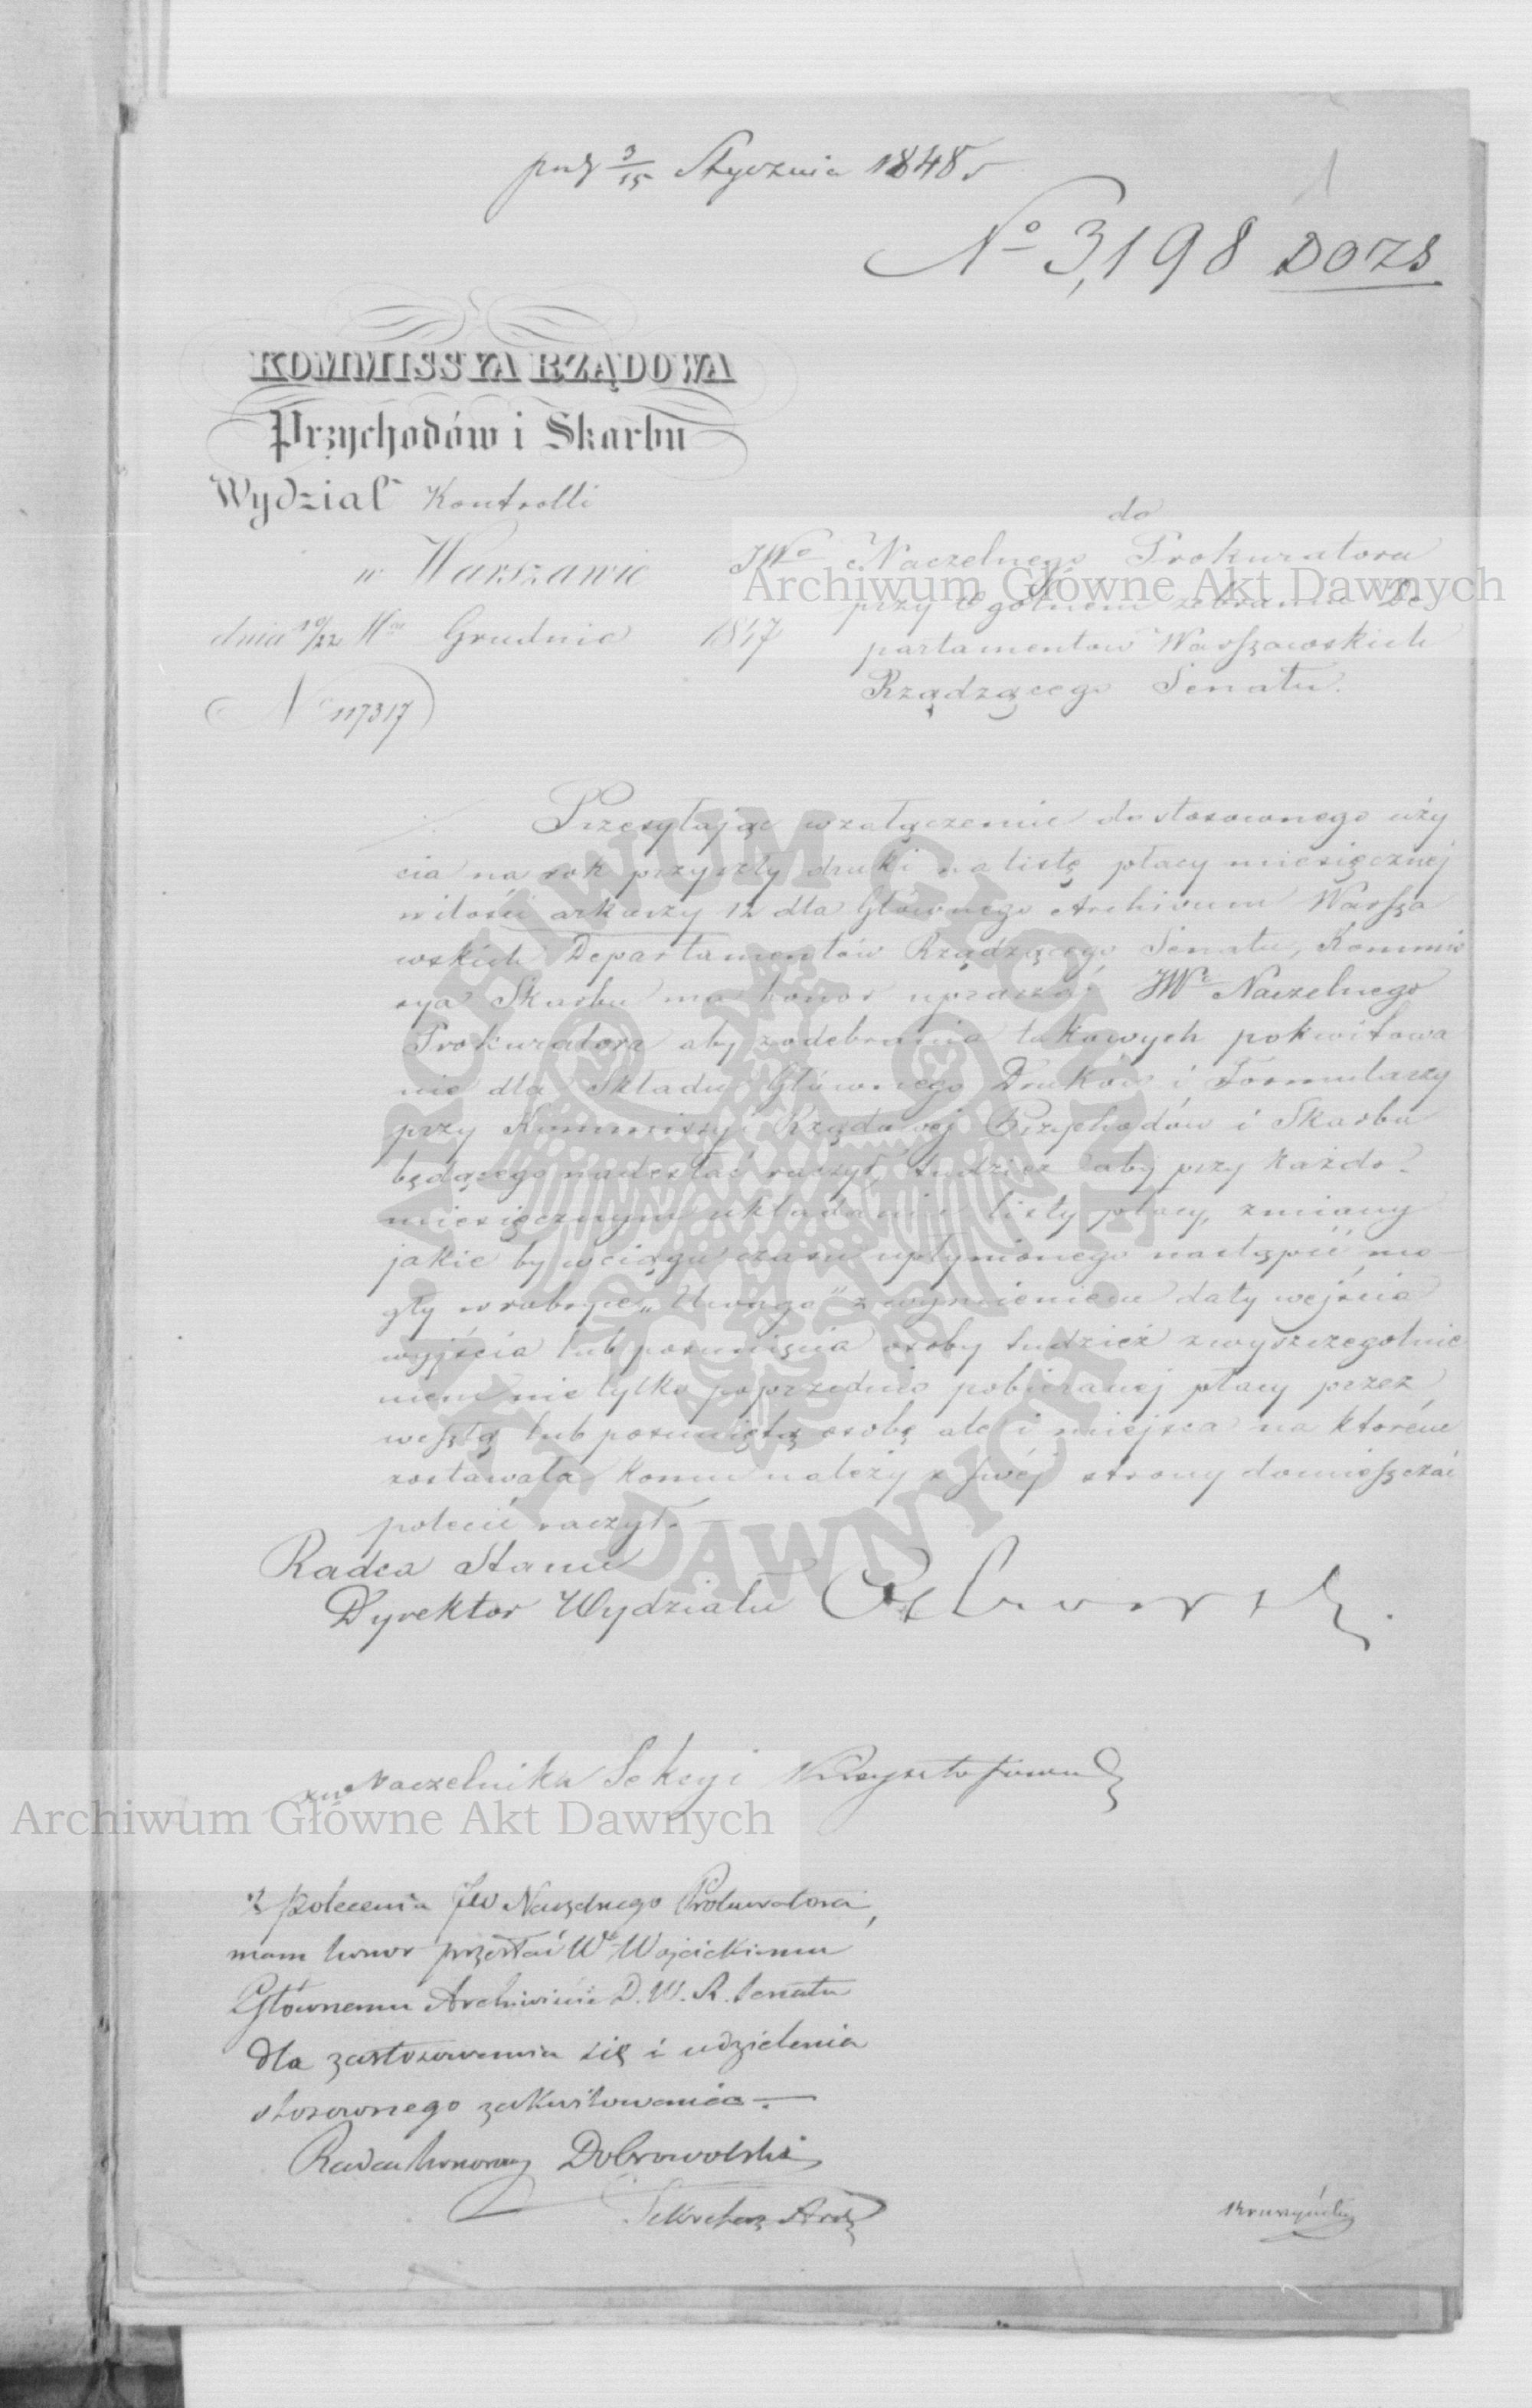 3/15 Stycznia 1848 r
1
No 3,198 D07S
KOMMISSYA RZĄDOWA
Przychodów i Skarbu
Wydział Kontrolli
w Warszawie
dnia 10/22 Mca Grudnia 1847
No 117317
do
JWo Naczelnego Prokuratora
przy Ogólnem zebraniu De
partamentow Warszawskich
Rządzącego Senatu.
Przesyłając w załączeniu do stosownego uży
cia na rok przyszły druki na listę płacy miesięcznej
w ilości arkuszy 12 dla Głównego Archivum Warsza
wskich Departamentów Rządzącego Senatu, Kommis
sya Skarbu ma honor upraszać JWo Naczelnego
Prokuratora aby z odebrania takowych pokwitowa
nie dla Składu Głównego Druków i Formularzy
przy Kommissyi Rządowej Przychodów i Skarbu
będącego nadesłać raczył, tudzież aby przy każdo-
miesięcznym układaniu listy płacy, zmiany
jakie by w ciągu czasu upłynionego nastąpić mo
gły w rubryce „Uwaga" z wymienieniem daty wejścia
wyjścia lub posunięcia osoby tudzież z wyszczególnie
niem nie tylko poprzednio pobieranej płacy przez
weszłą lub posuniętą osobę ale i miejsca na którém
zostawała komu należy z swéj strony domieszczać
polecić raczył.
Radca Stanu
Dyrektor Wydziału
Naczelnika Sekcyi
z polecenia JW Naczelnego Prokuratora,
mam honor przesłać Wo Wojcickiemu
Głównemu Archiwiście D. W. R. Senatu
dla zastosowania się i udzielenia
stosownego zakwitowania.
Radca honorowy Dobrowolski
Sekretarz
Archiwum Główne Akt Dawnych
Archiwum Główne Akt Dawnych
ARCHIWUM GŁÓWNE AKT DAWNYCH